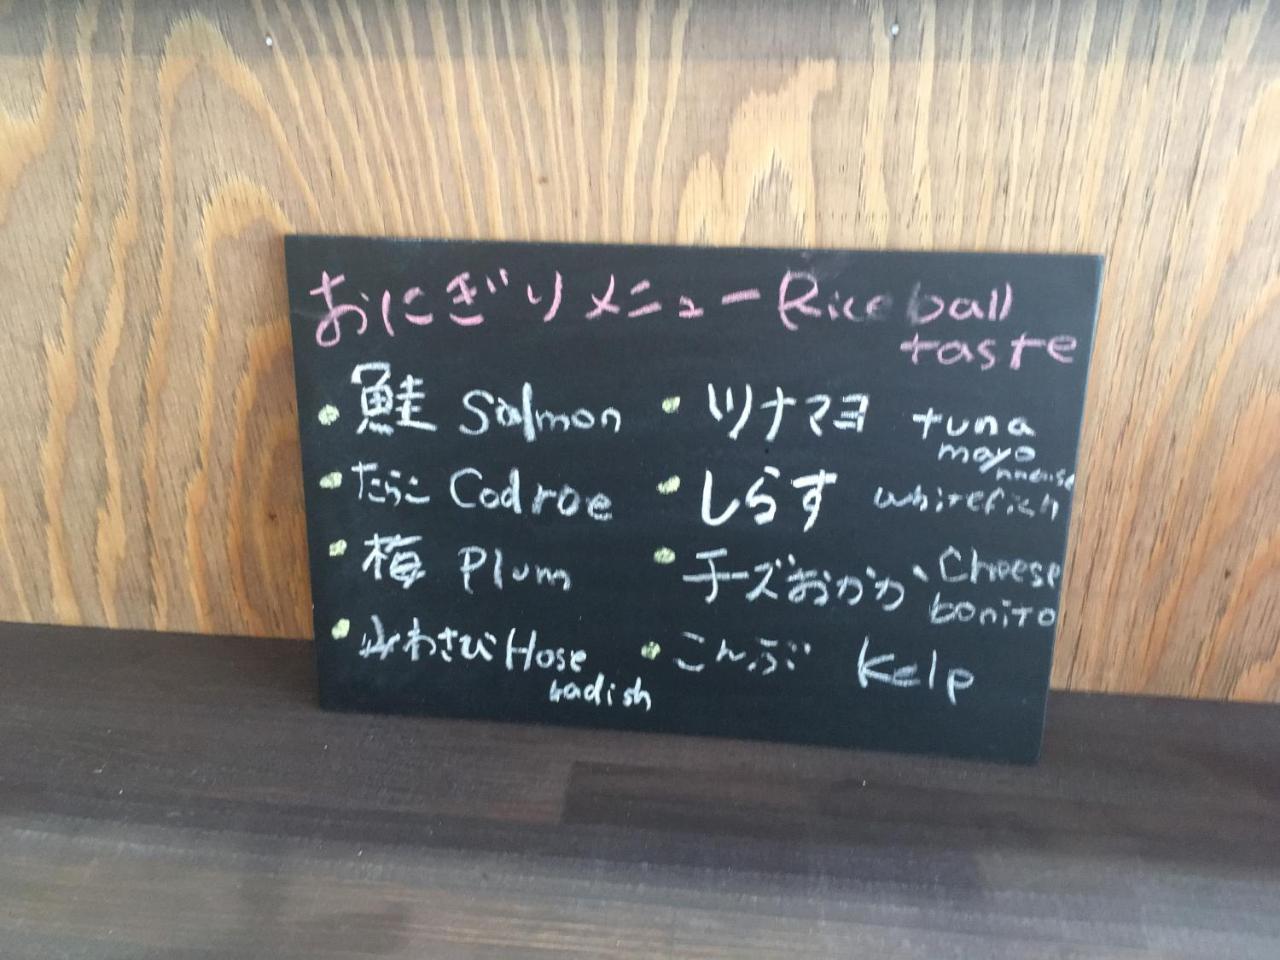 おにぎりメニュー Rice ball
taste
鮭 Salmon
たらこ Codroe
梅 Plum
山わさび Hose
radish
ツナマヨ tuna
mayo
nnaise
しらす whitefish
チーズおかか Cheese
bonito
こんぶ Kelp